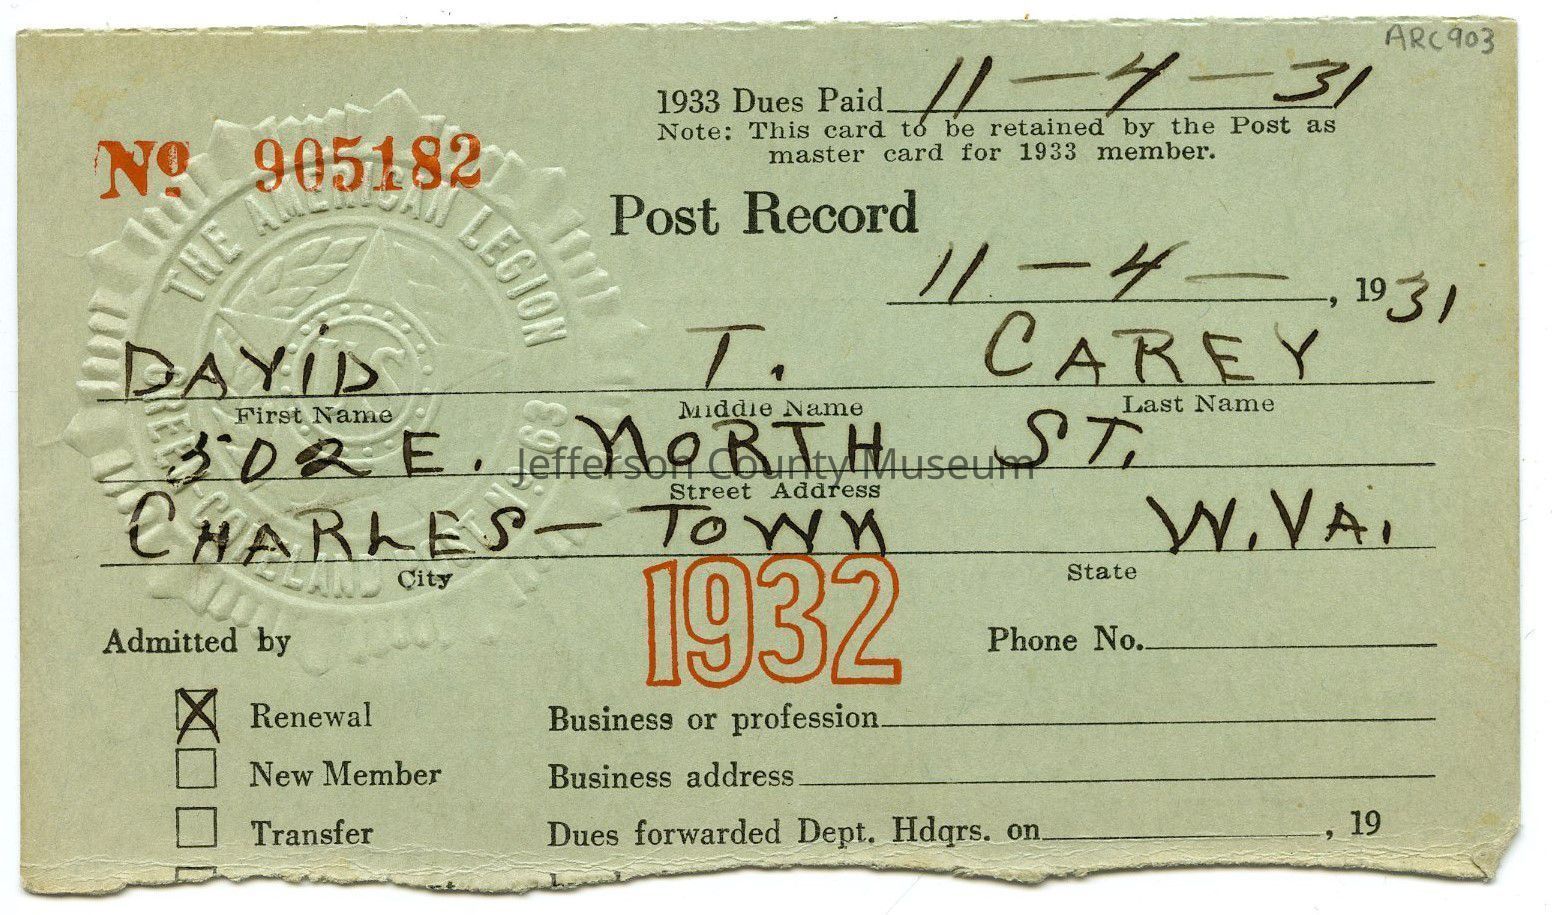 ARC903
1933 Dues Paid 11-4-31
Note: This card to be retained by the Post as
master card for 1933 member.
No 905182
THE AMERICAN LEGION
Post Record
11-4-, 1931
U S
DAVID T. CAREY
First Name Middle Name Last Name
502 E. NORTH ST.
Jefferson County Museum
Street Address
CHARLES-TOWN W.VA.
City State
1932
Admitted by Phone No.
X Renewal Business or profession
New Member Business address
Transfer Dues forwarded Dept. Hdqrs. on , 19